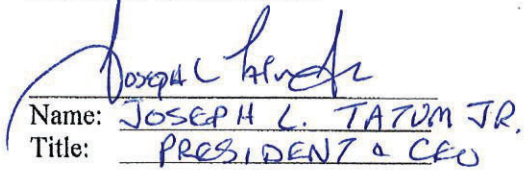 Joseph L Tatum Jr
Name: JOSEPH L. TATUM JR.
Title: PRESIDENT & CEO